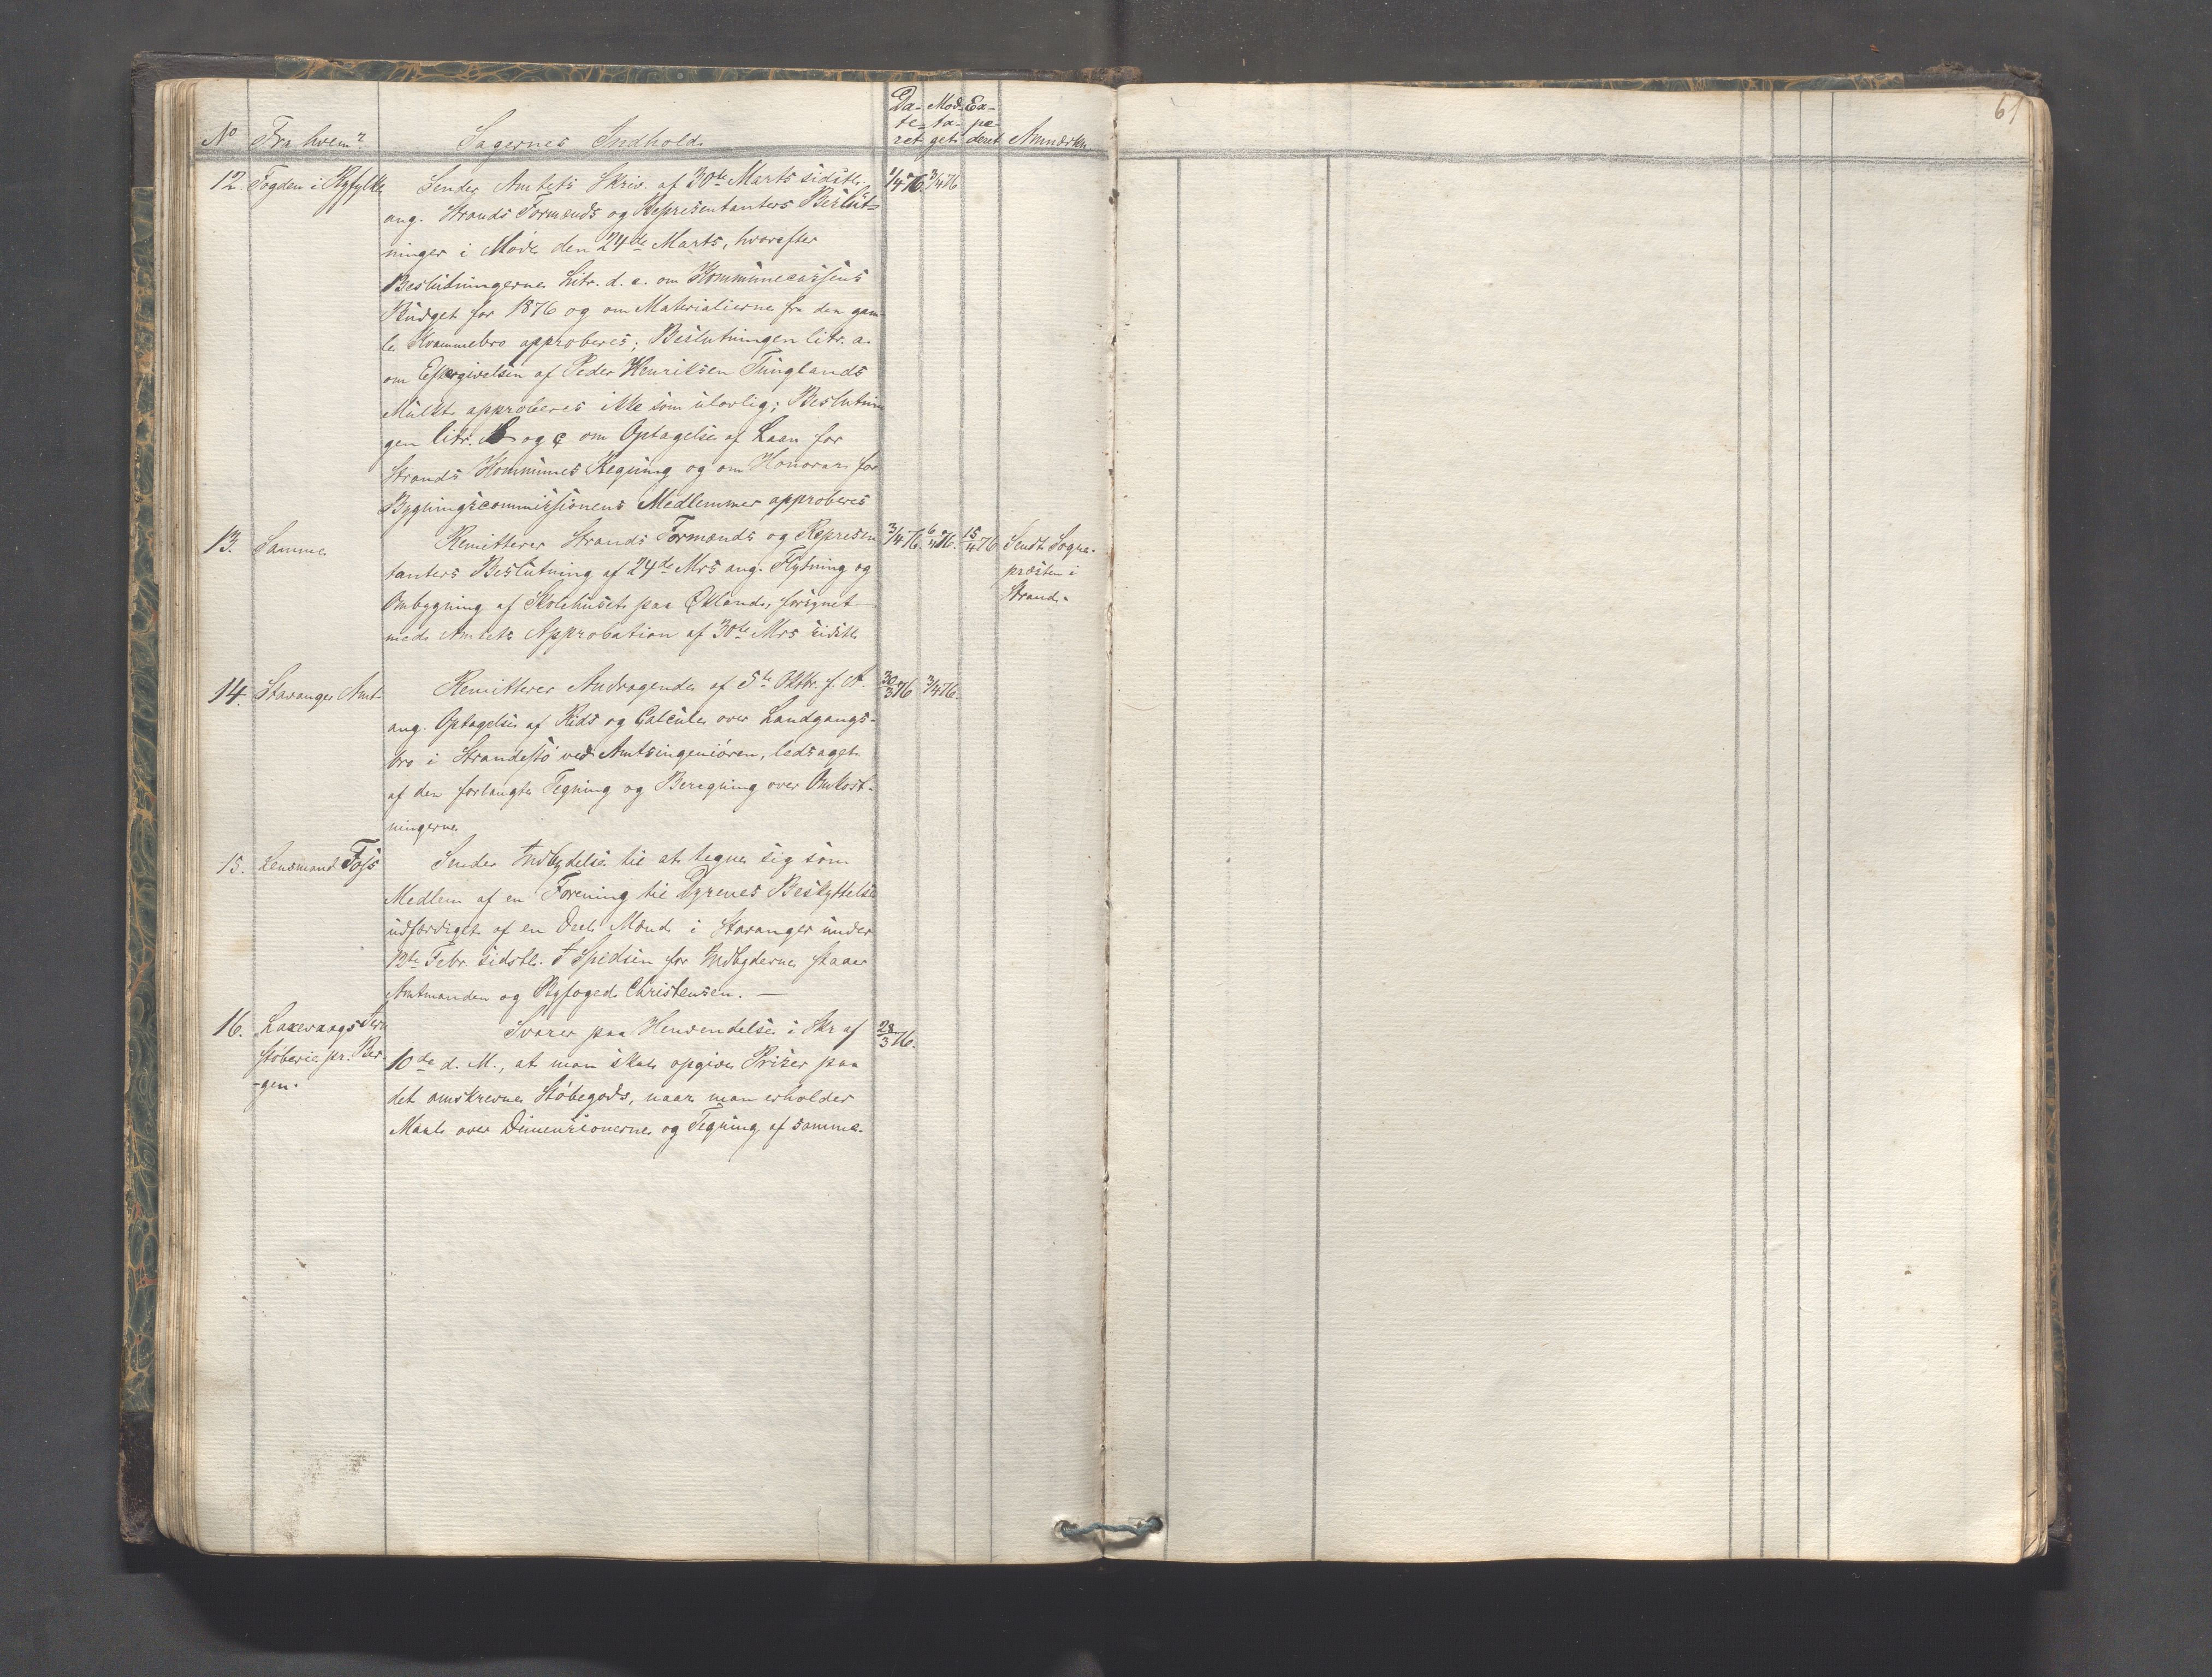 61
Da- Mod- Ex-
te- ta- pe-
No Fra hvem? Sagernes Indhold. ret get deret Anmærkn.
12. Fogden i Ryfylke Sender Amtets Skriv. af 30te Marts sidstl. 1/4 76. 3/4 76
ang. Strands Formænds og Repræsentanters Beslut-
ninger i Møde den 24de Marts, hvorefter
Beslutningerne Litr. d. e. om Kommunecassens
Budget for 1876 og om Materialierne fra den gam-
le Kvammebro approberes; Beslutningen litr. a.
om Eftergivelsen af Peder Henriksen Tunglands
Mulkt approberes ikke som ulovlig; Beslutnin
gen litr. B og c om Optagelse af Laan for
Strands Kommunes Regning og om Honorar for
Bygningscommissionens Medlemmer approberes
13. Samme Remitterer Strands Formænds og Represen 3/4 76. 6/4 76. 15/4 76 Sendt Sogne-
tanters Beslutning af 24de Mrs ang. Flytning og præsten i
Ombygning af Skolehuset paa Økland, forsynet Strand.
med Amtets Approbation af 30te Mrs sidstl.
14. Stavanger Amt Remitterer Andragende af 5te Oktbr. f. A. 30/3 76 3/4 76.
ang. Optagelse af Rids og Calcule over Landgangs-
bro i Strandessö ved Amtsingeniören, ledsaget
af den forlangte Tegning og Beregning over Omkost-
ningerne
15. Lensmand Foss Sender Indbydelse til at tegne sig som
Medlem af en Forening til Dyrenes Beskyttelse
udfærdiget af en Deel Mænd i Stavanger under
12te Febr. sidstl. I Spidsen for Indbyderne staaer
Amtmanden og Byfoged Christensen. —
16. Laxevaags Jern Svarer paa Henvendelse i Skr af 28/3 76.
støberie pr. Ber- 10de d. M., at man skal opgive Priser paa
-gen. det omskrevne Støbegods, naar man erholder
Maal over Dimensionerne og Tegning af samme.